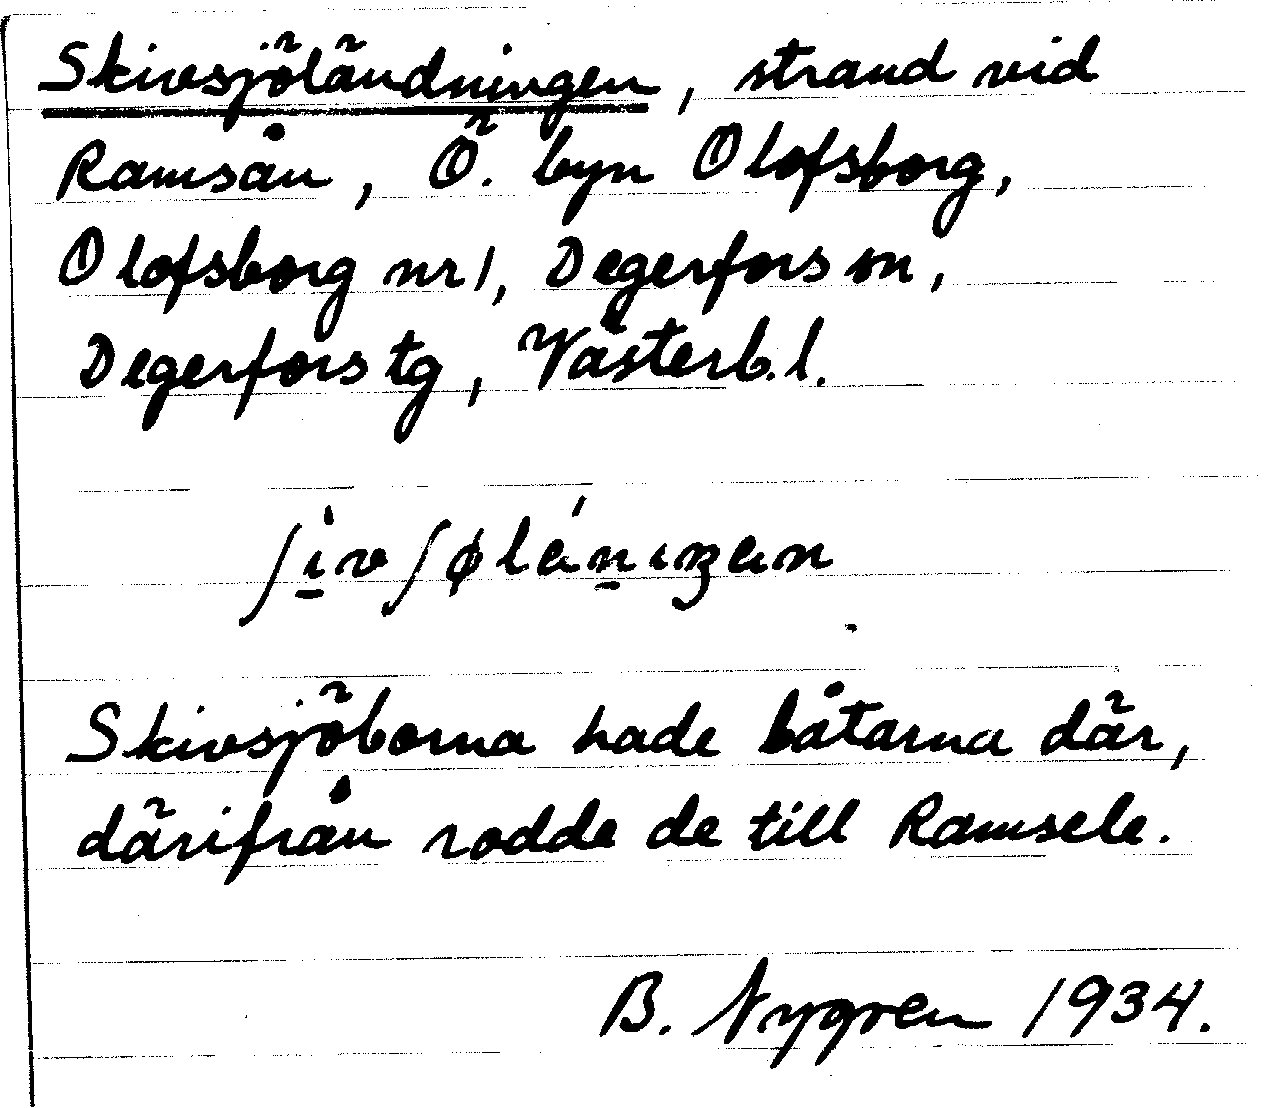 Skivsjöländningen, strand vid
Ramsån, Ö. byn Olofsborg,
Olofsborg nr 1, Degerfors sn,
Degerfors tg, Västerb. l.
ʃi̱vʃøláṉıŋɛn
Skivsjöborna hade båtarna där,
därifrån rodde de till Ramsele.
B. Nygren 1934.